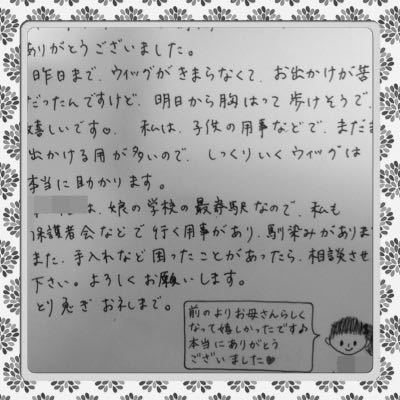 ありがとうございました。
昨日まで、ウィッグがきまらなくて、お出かけが苦
だったんですけど、明日から胸はって歩けそうで、
嬉しいです♡。私は、子供の用事などで、まだま
出かける用が多いので、しっくりいくウィッグは
本当に助かります。
は、娘の学校の最寄駅なので、私も
保護者会などで行く用事があり、馴染みがありま
また、手入れなど困ったことがあったら、相談させ
下さい。よろしくお願いします。
とり急ぎお礼まで。
前のよりお母さんらしく
なって嬉しかったです♪
本当にありがとう
ございました♥